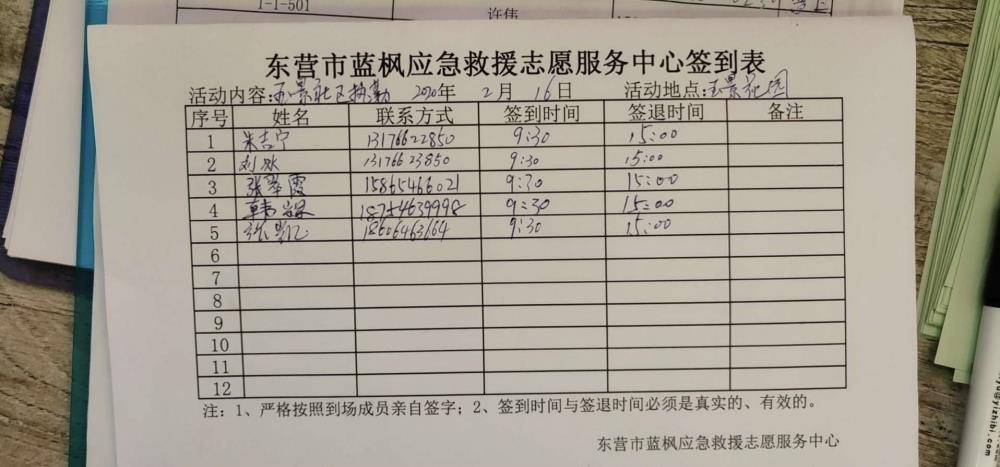 1-1-501
许伟
东营市蓝枫应急救援志愿服务中心签到表
活动内容:玉景社区执勤 2020年 2月 16日 活动地点:玉景花园
序号 姓名 联系方式 签到时间 签退时间 备注
1 朱吉宁 13176622850 9:30 15:00
2 刘冰 13176623850 9:30 15:00
3 张翠霞 15865466021 9:30 15:00
4 韩 18754639998 9:30 15:00
5 张凯 18606463664 9:30 15:00
6
7
8
9
10
11
12
注：1、严格按照到场成员亲自签字；2、签到时间与签退时间必须是真实的、有效的。
东营市蓝枫应急救援志愿服务中心